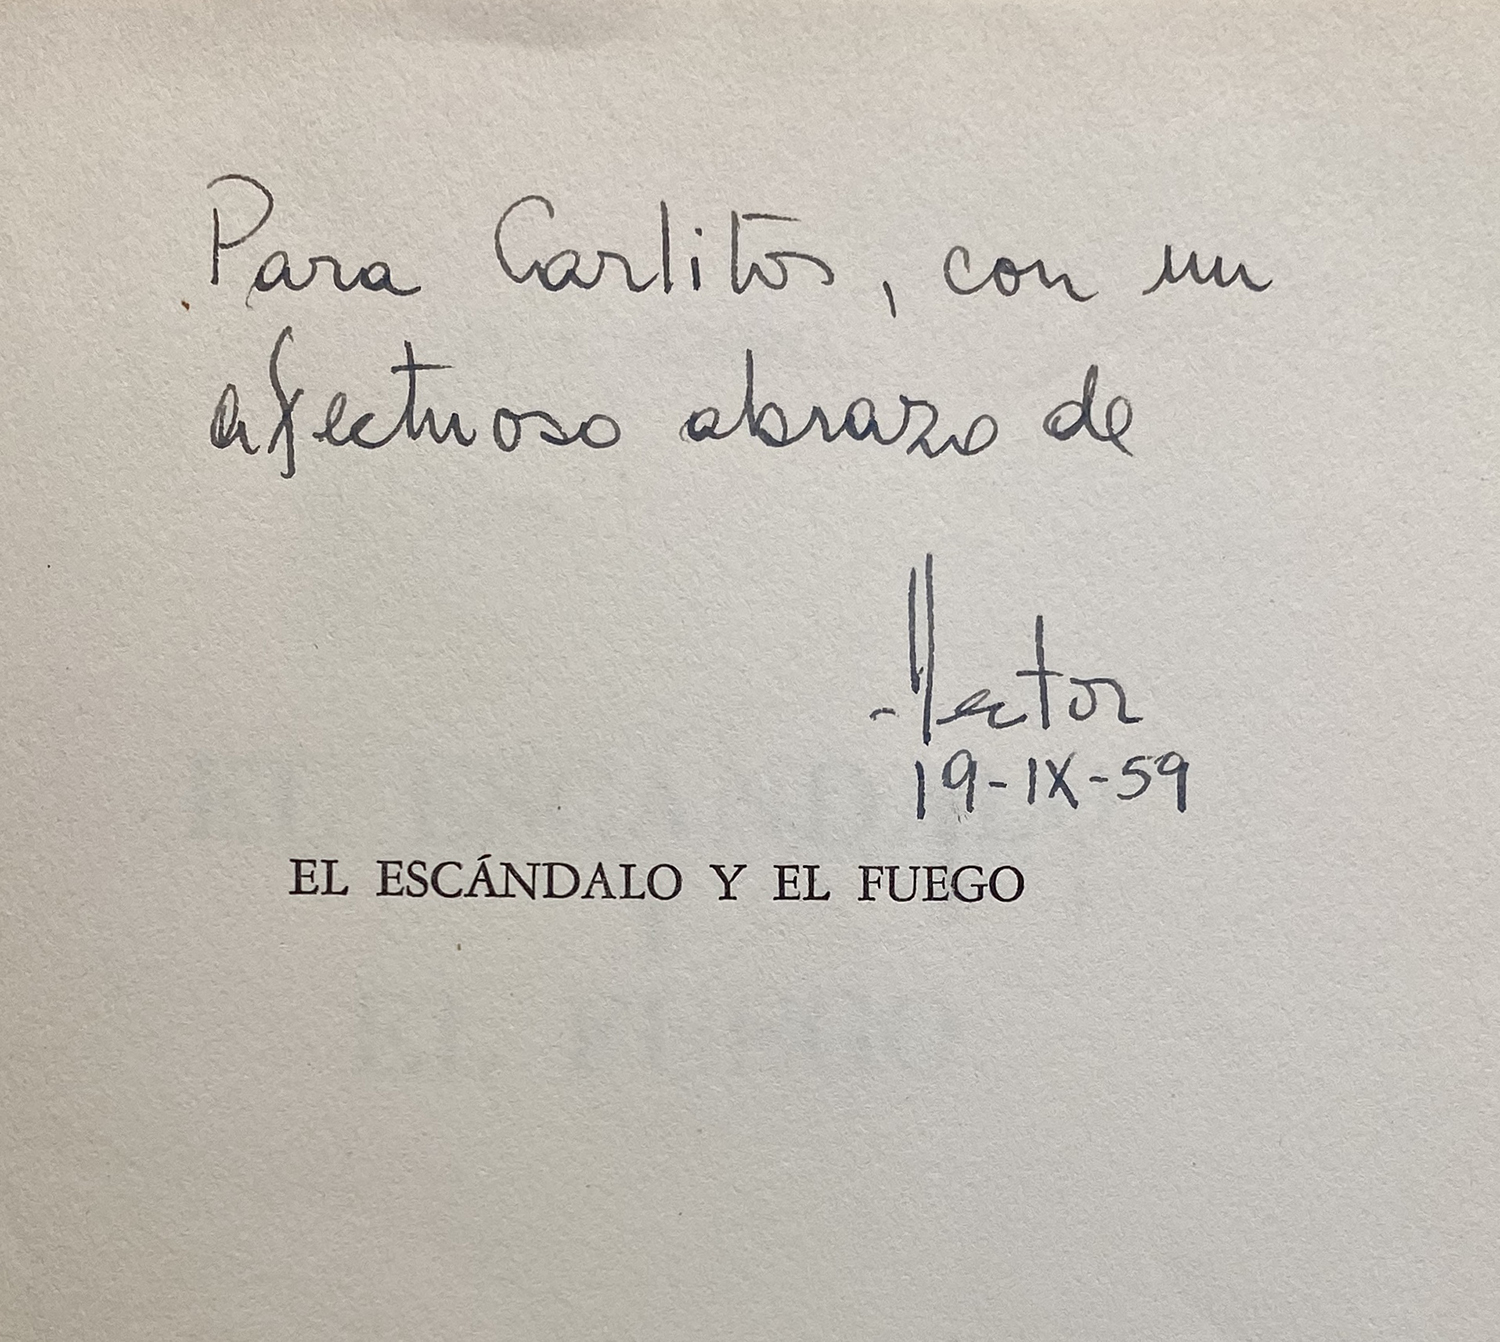 Para Carlitos, con un
afectuoso abrazo de
Hector
19-IX-59
EL ESCÁNDALO Y EL FUEGO